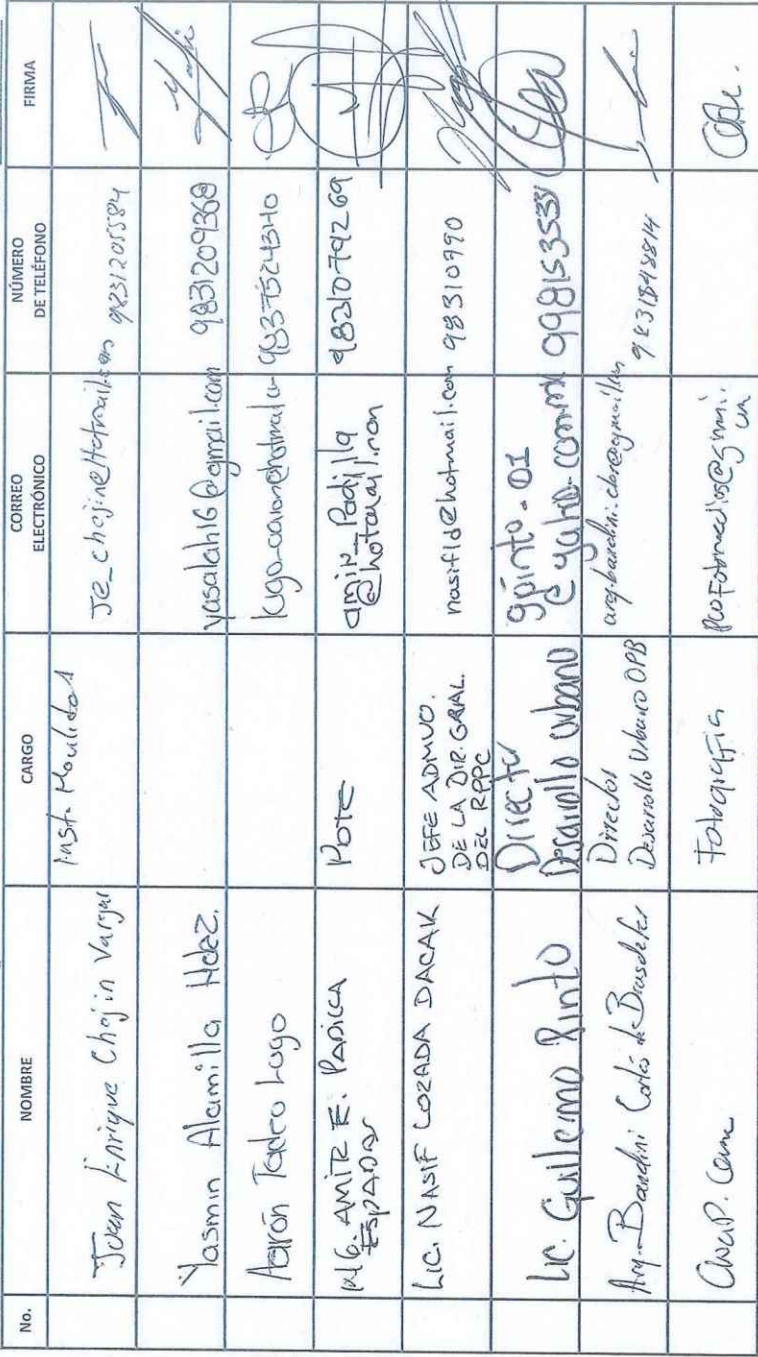 No. NOMBRE CARGO CORREO ELECTRÓNICO NÚMERO DE TELÉFONO FIRMA
Juan Enrique Chejin Vargas Inst. Je_chejin@Hotmail.com 9831205584
Yasmin Alamilla Hdez. yasalah16@gmail.com 9831209368
Aarón Tadeo Lugo 9837524340
AMIR E. PADILLA ESPADAS amir_Padilla
@hotmail.com 9821079269
LIC. NASIF LOZADA DACAK JEFE ADMVO.
DE LA DIR. GRAL.
DEL RPPC nasifld@hotmail.com 98310990
Lic. Guillermo Pinto Director
Desarrollo Urbano gpinto-01
@yahoo.com.mx
Arq. Bandini Cortés de Director
Desarrollo Urbano OPB 9831848814
Fotografía